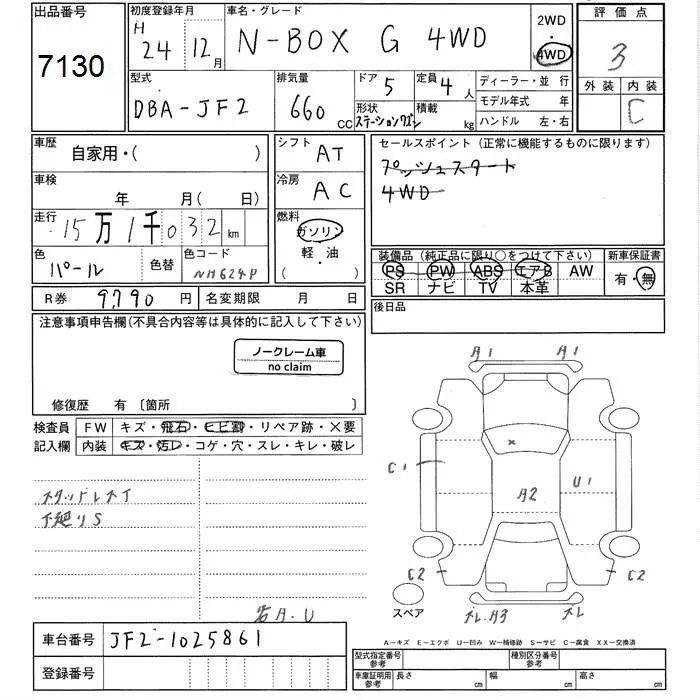 出品番号
7130
初度登録年月
H 24 12月
車名・グレード
N-BOX G 4WD
2WD
・
4WD
評価点
3
外装 内装
C
型式
DBA-JF2
排気量
660 CC
ドア 5
定員 4人
形状 ステーションワゴン
積載 kg
ディーラー・並 行
モデル年式 年
ハンドル 左・右
車歴
自家用・( )
シフト AT
車検
年 月( 日)
冷房 AC
走行 15万1千032km
燃料
ガソリン
軽・油
( )
色 パール
色替
色コード NH624P
セールスポイント (正常に機能するものに限ります)
プッシュスタート
4WD
装備品 (純正品に限り○をつけて下さい)
PS PW ABS エアB AW
SR ナビ TV 本革
新車保証書
有・無
R券 9,790円
名変期限 月 日
後日品
注意事項申告欄(不具合内容等は具体的に記入して下さい)
ノークレーム車
no claim
修復歴 有 〔箇所 〕
検査員
記入欄
FW キズ・飛石・ヒビ割・リペア跡・×要
内装 キズ・汚レ・コゲ・穴・スレ・キレ・破レ
スタッドレスT
下廻りS
若A.U
A1 A1
C1
×
A2
U1
C2 C2
スペア
スレ.A3 スレ
A-キズ E-エクボ U-凹み W-補修跡 S-サビ C-腐食 XX-交換済
車台番号 JF2-1025861
登録番号
型式指定番号
参考
種別区分番号
参考
車庫証明用
参考
長さ cm
幅 cm
高さ cm